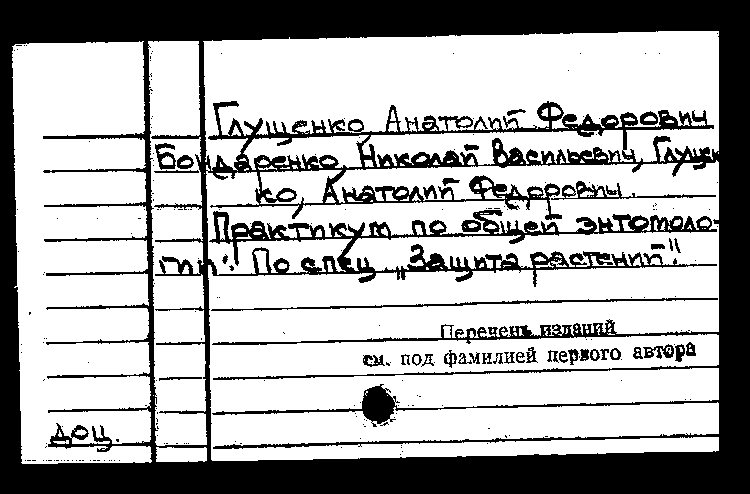 Глущенко, Анатолий Федорович
Бондаренко, Николай Васильевич, Глущен
ко, Анатолий Федорович.
Практикум по общей энтомоло-
гии: По спец. „Защита растений".
Перечень изданий
см. под фамилией первого автора
доц.